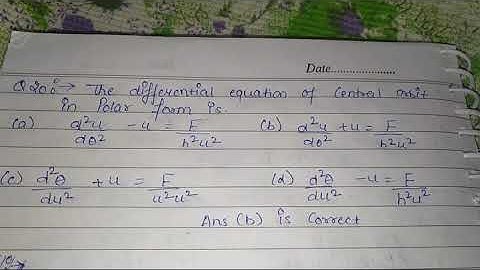 Date.....................
Q20:→ The differential equation of central orbit
in Polar form is.
(a) d²u/dθ² - u = F/h²u² (b) d²u/dθ² + u = F/h²u²
(c) d²θ/du² + u = F/u²u² (d) d²θ/du² - u = F/h²u²
Ans (b) is Correct